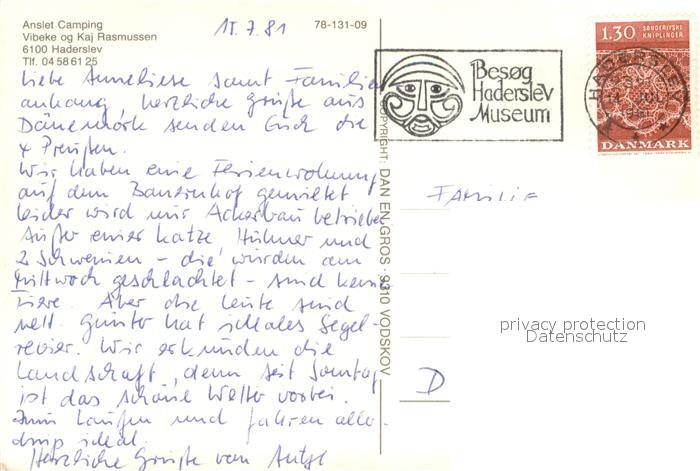 Anslet Camping
Vibeke og Kaj Rasmussen
6100 Haderslev
Tlf. 04 58 61 25
15.7.81
78-131-09
Liebe Anneliese samt Familien
anhang, herzliche Grüße aus
Dänemark senden Euch die
4 Preußen.
Wir haben eine Ferienwohnung
auf dem Bauernhof gemietet
leider wird nur Ackerbau betrieben
Außer einer Katze, Hühner und
2 Schweinen - die wurden am
Mittwoch geschlachtet - sind keine
Tiere. Aber die Leute sind
nett. Günter hat ideales Segel-
revier. Wir erkunden die
Landschaft, denn seit Sonntag
ist das schöne Wetter vorbei.
Zum Laufen und fahren aller-
dings ideal.
Herzliche Grüße von
COPYRIGHT: DAN EN-GROS · 9310 VODSKOV
Besøg
Haderslev
Museum
HADERSLEV
1.30 SØNDERJYSKE
KNIPLINGER
DANMARK
Familie
D
privacy protection
Datenschutz